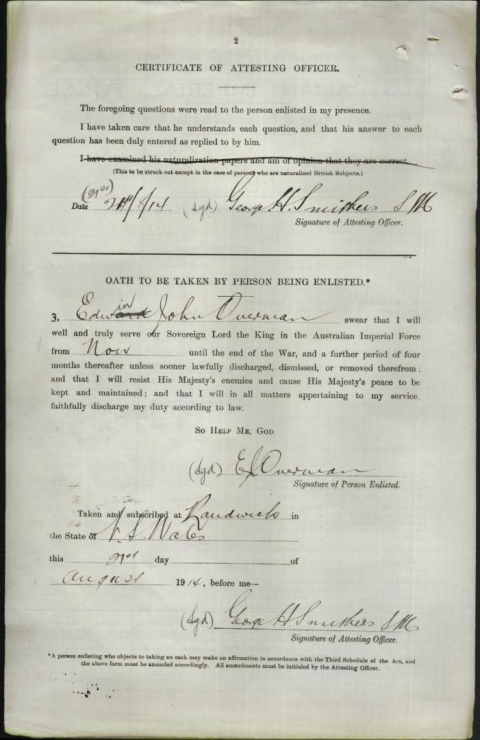 2
CERTIFICATE OF ATTESTING OFFICER.
The foregoing questions were read to the person enlisted in my presence.
I have taken care that he understands each question, and that his answer to each
question has been duly entered as replied to by him.
I have examined his naturalization papers and am of opinion that they are correct.
(This to be struck out except in the case of persons who are naturalized British Subjects.)
Date /8/14 (Sgd) George H. Smithers S M
Signature of Attesting Officer.
OATH TO BE TAKEN BY PERSON BEING ENLISTED.*
in
3, Edward John Overman swear that I will
well and truly serve our Sovereign Lord the King in the Australian Imperial Force
from Now until the end of the War, and a further period of four
months thereafter unless sooner lawfully discharged, dismissed, or removed therefrom;
and that I will resist His Majesty's enemies and cause His Majesty's peace to be
kept and maintained; and that I will in all matters appertaining to my service,
faithfully discharge my duty according to law.
SO HELP ME, GOD.
(Sgd) E J Overman
Signature of Person Enlisted.
Taken and subscribed at Randwick in
the State of N. S. Wales
this 21st day of
August 1914, before me—
(Sgd) George H Smithers S M
Signature of Attesting Officer.
*A person enlisting who objects to taking an oath may make an affirmation in accordance with the Third Schedule of the Act, and
the above form must be amended accordingly. All amendments must be initialed by the Attesting Officer.